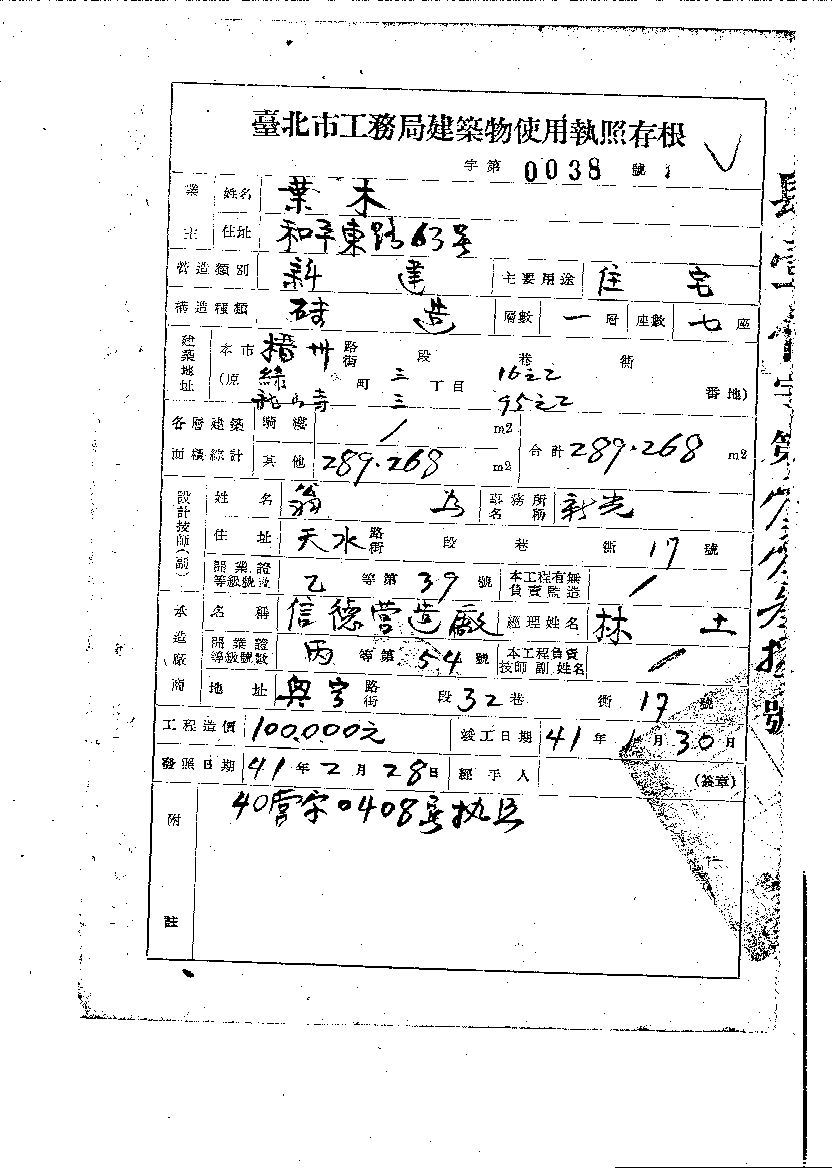 臺北市工務局建築物使用執照存根
字第 0038 號
業主 姓名 葉木
住址 和平東路63号
營造類別 新建 主要用途 住宅
構造種類 磚造 層數 一層 座數 七座
建築地址 本市 路街 段 巷 衖
(原 綠 町 三 丁目 16之2 番地)
龍山寺 三 95之2
各層建築面積綜計 騎樓 / m2 合計 289.268 m2
其他 289.268 m2
設計技師(副) 姓名 翁 事務所名稱 新光
住址 天水路街 段 巷 衖 17 號
開業證等級號數 乙等第 39 號 本工程有無負責監造 /
承造廠商 名稱 信德營造廠 經理姓名 林土
開業證等級號數 丙等第 54 號 本工程負責技師副姓名 /
地址 路街 段 32 巷 衖 17 號
工程造價 100,000元 竣工日期 41年1月30日
發照日期 41年2月28日 經手人 (簽章)
附註 40營字0408号执照